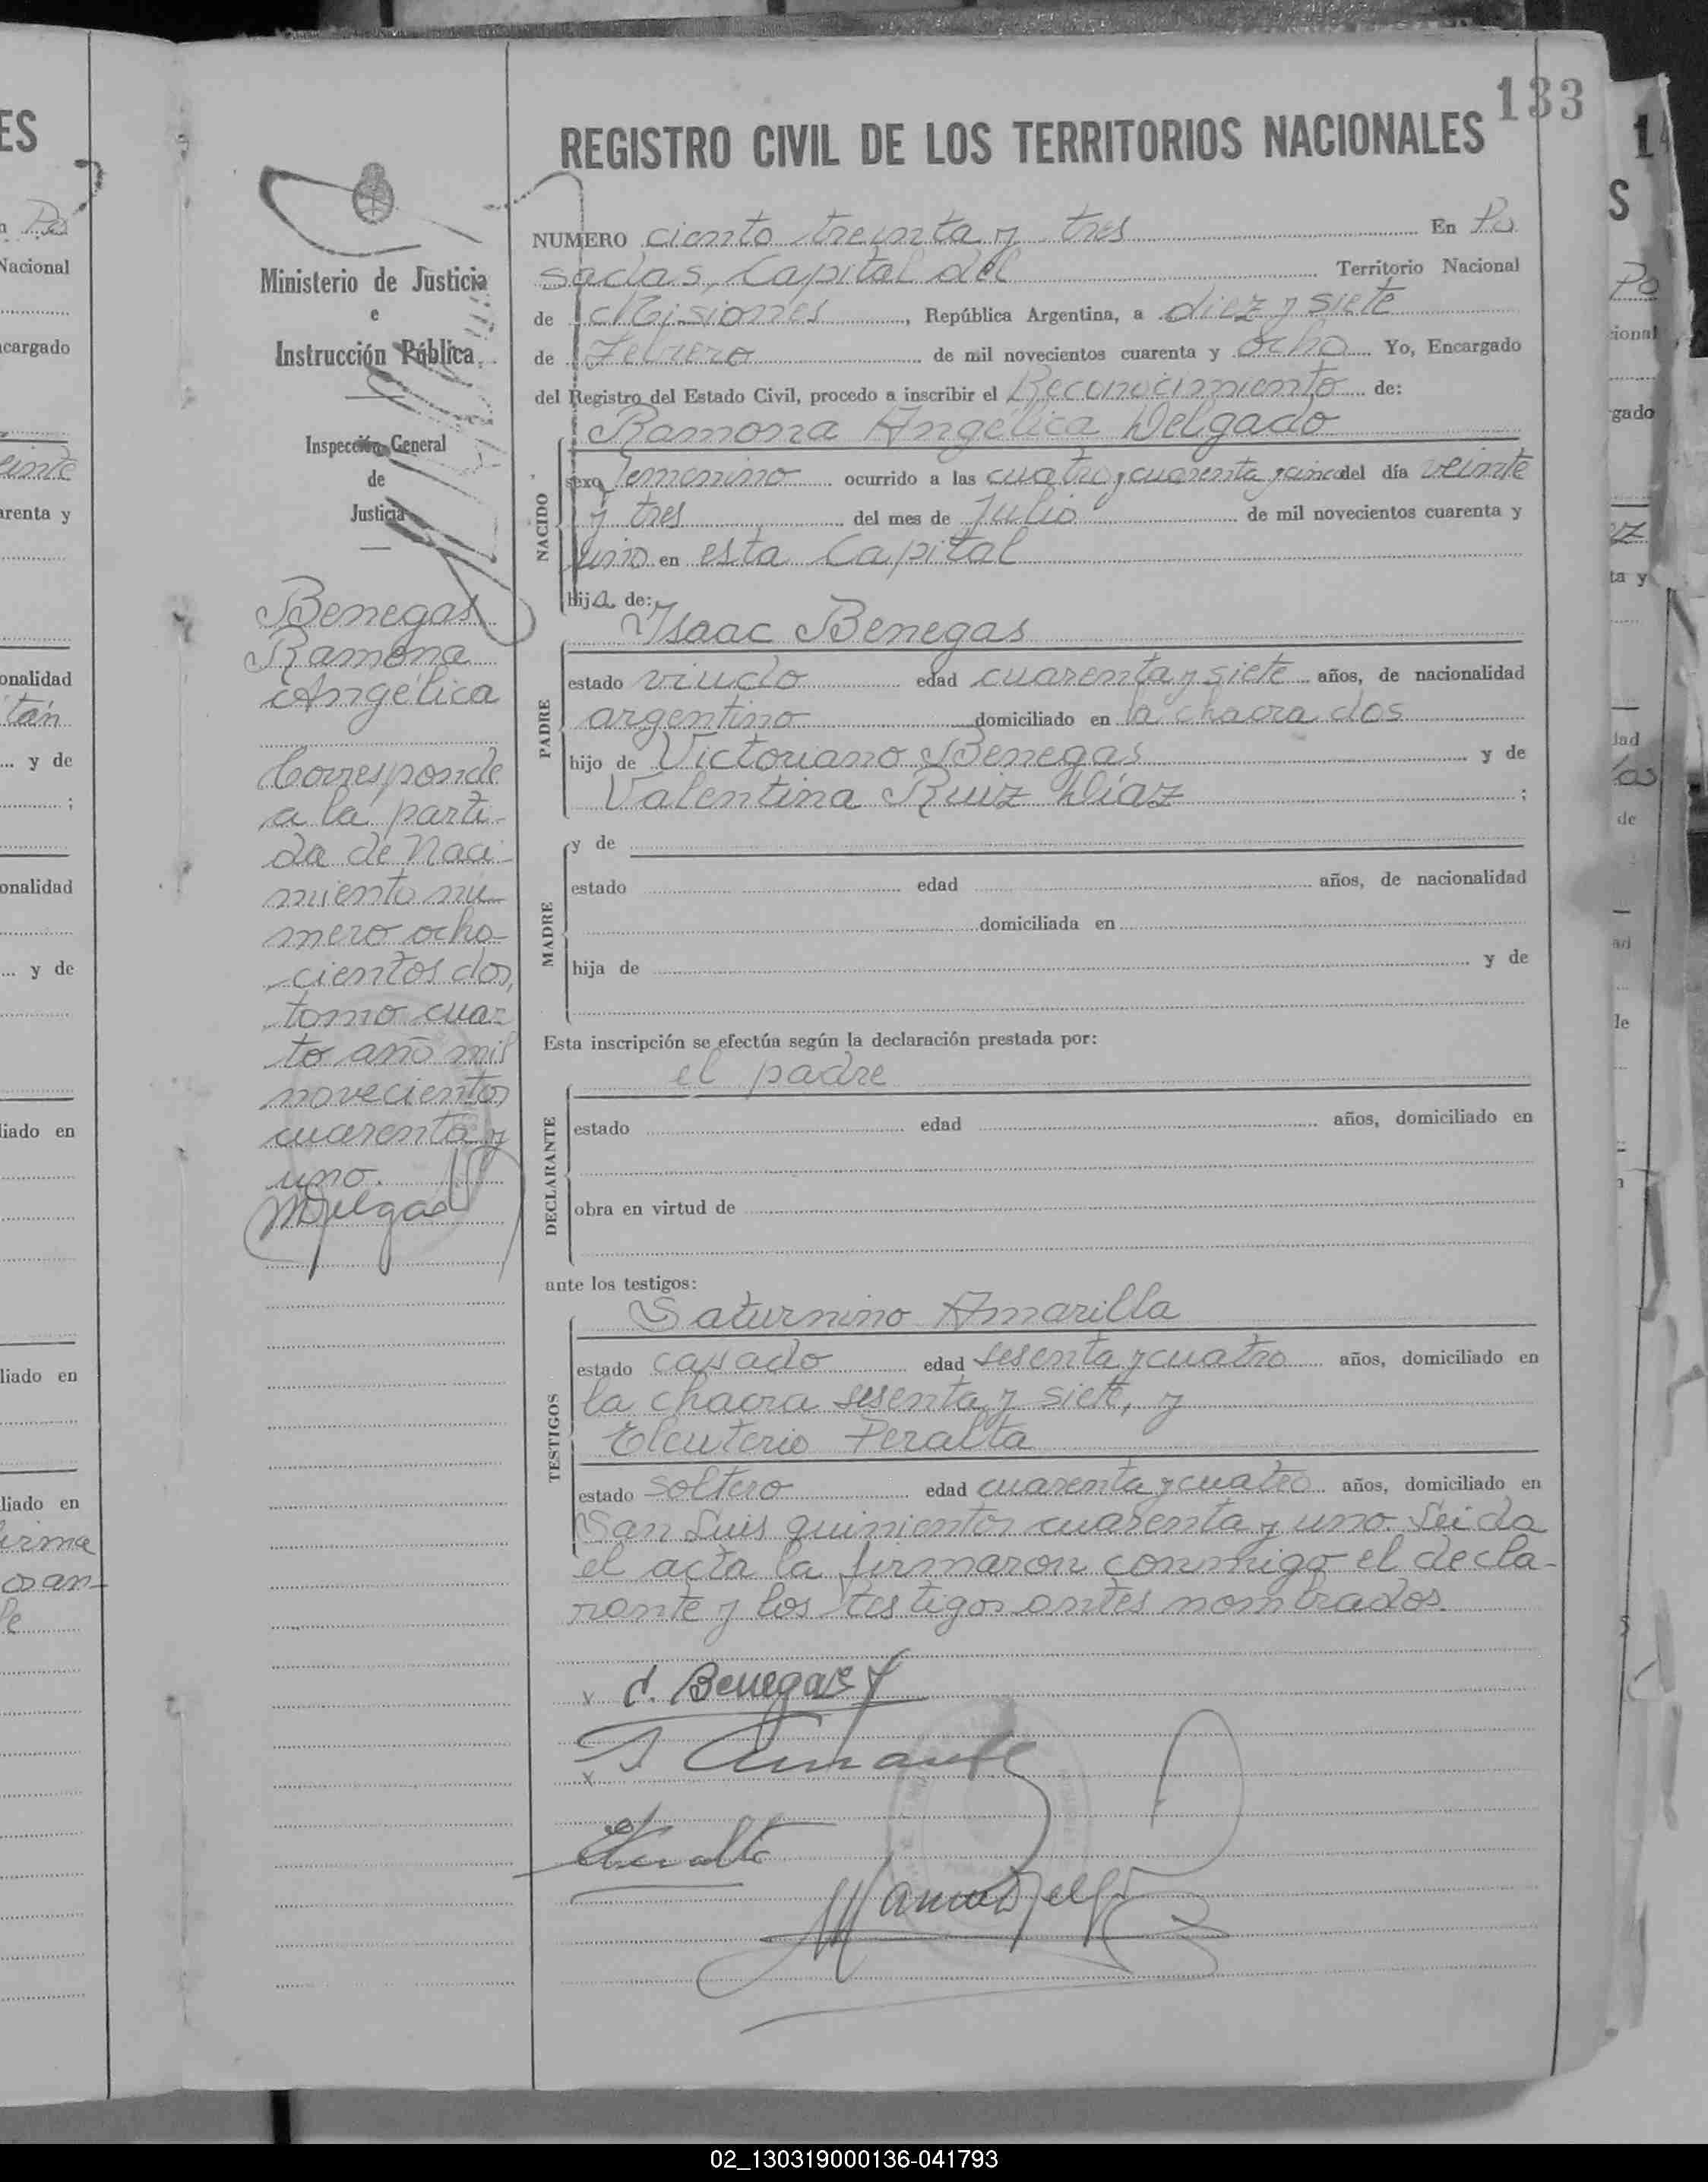 133
REGISTRO CIVIL DE LOS TERRITORIOS NACIONALES
Ministerio de Justicia
e
Instrucción Pública
Inspección General
de
Justicia
Benegas
Ramona
Angélica
Corresponde
a la parti-
da de Naci-
miento nú-
mero ocho-
cientos dos,
tomo cuar-
to año mil
novecientos
cuarenta y
uno.
NUMERO ciento treinta y tres En Po
sadas, Capital del Territorio Nacional
de Misiones, República Argentina, a diez y siete
de Febrero de mil novecientos cuarenta y ocho Yo, Encargado
del Registro del Estado Civil, procedo a inscribir el Reconocimiento de:
Ramona Angélica Delgado
NACIDO
sexo femenino ocurrido a las cuatro y cuarenta y cinco del día veinte
y tres del mes de Julio de mil novecientos cuarenta y
uno en esta Capital
hija de:
Isaac Benegas
PADRE
estado viudo edad cuarenta y siete años, de nacionalidad
argentino domiciliado en la chacra dos
hijo de Victoriano Benegas y de
Valentina Ruiz Díaz ;
MADRE
y de
estado edad años, de nacionalidad
domiciliada en
hija de y de
Esta inscripción se efectúa según la declaración prestada por:
el padre
DECLARANTE
estado edad años, domiciliado en
obra en virtud de
ante los testigos:
Saturnino Amarilla
TESTIGOS
estado casado edad sesenta y cuatro años, domiciliado en
la chacra sesenta y siete, y
Eleuterio Peralta
estado soltero edad cuarenta y cuatro años, domiciliado en
San Luis quinientos cuarenta y uno. Leida
el acta la firmaron conmigo el decla-
rante y los testigos antes nombrados.
Benegas
02_130319000136-041793